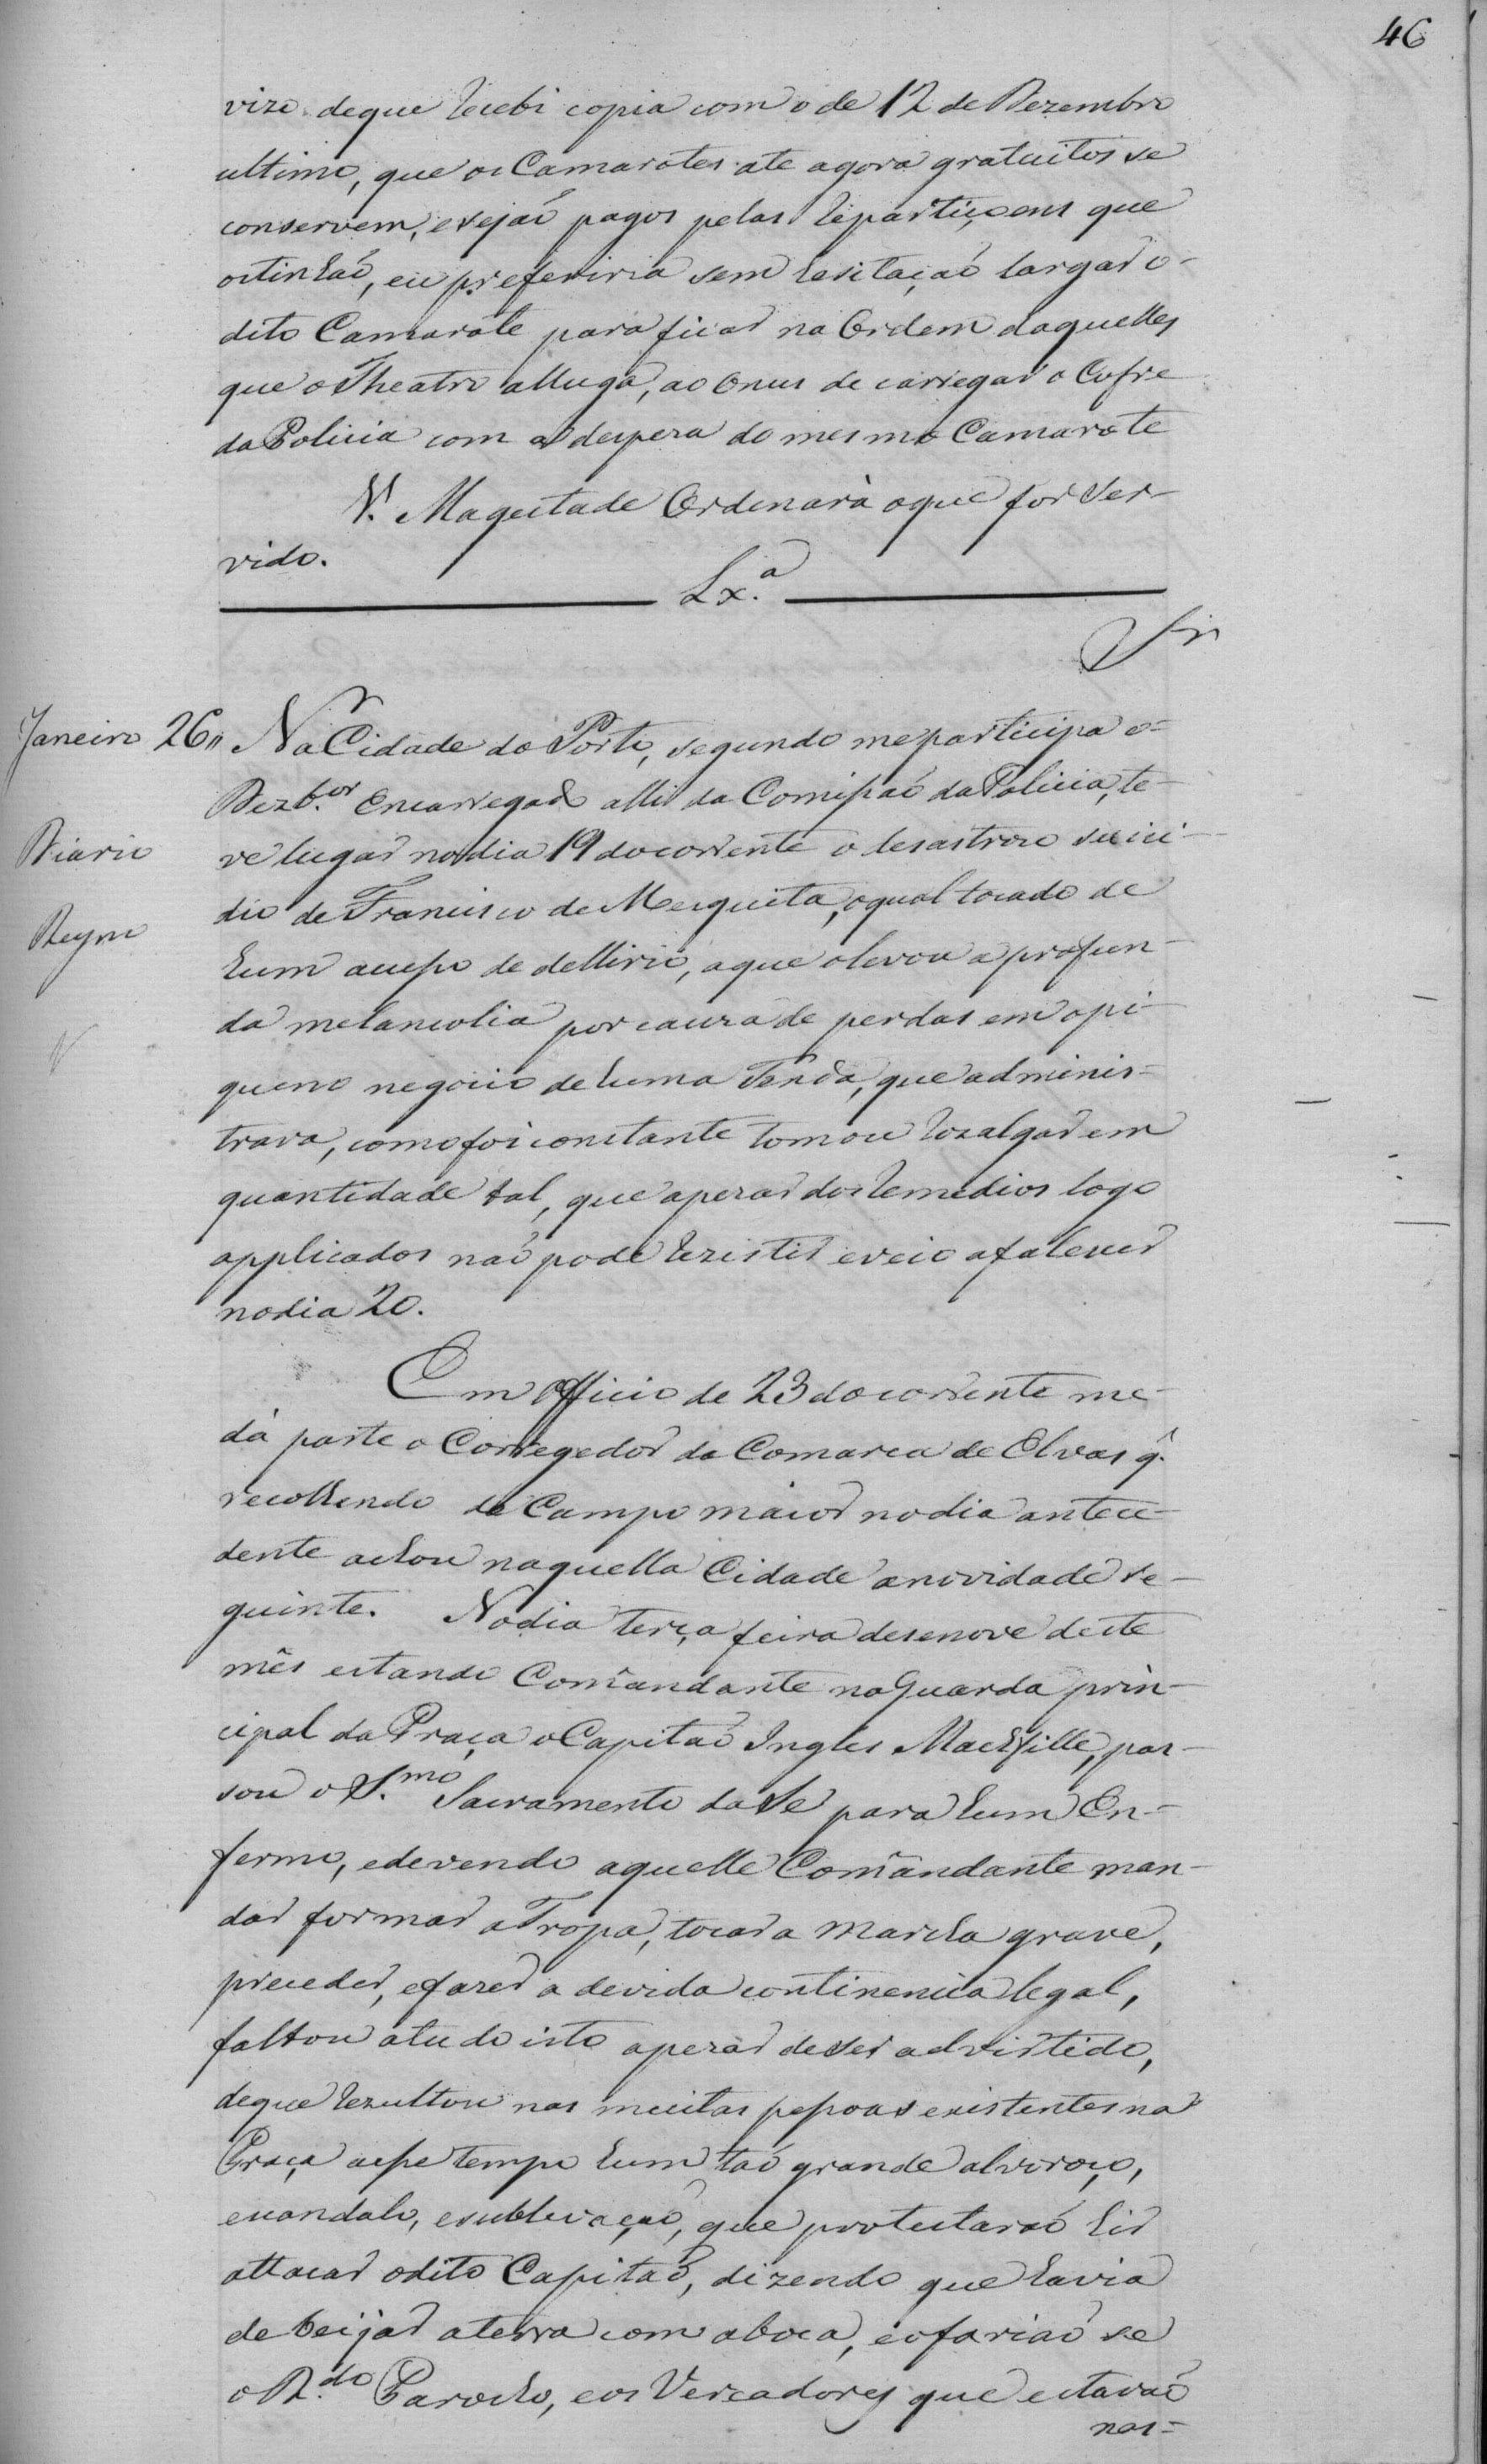 46
vizo deque recebi copia com o de 12 de Dezembro
ultimo, que os Camarotes ate agora gratuitos se
conservem, e sejaõ pagos pelas repartiçoens que
os tinhaõ, eu preferiria sem hesitaçaõ largar o-
dito Camarote para ficar na Ordem daquelles
que o Theatro alluga, ao onus de carregar o Cofre
da Policia com a despeza do mesmo Camarote
V. Magestade Ordenarà o que for ser-
vido.
Lx.ª
Sr
Janeiro 26,, Na Cidade do Porto, segundo me participa o=
Dezb.or Encarregado alli da Comissaõ da Policia, te-
Diario
ve lugar no dia 19 do corrente o desastrozo suici-
dio de Francisco de Mesquita, o qual tocado de
Reyno
hum accesso de dellirio, a que o levou a profun-
da melancolia por cauza de perdas em o pi-
queno negocio de huma Tenda, que adminis-
trava, como foi constante tomou rozalgar em
quantidade tal, que apezar dos remedios logo
applicados naõ pode rezistir e veio a falecer
no dia 20.
Em officio de 23 do corrente me-
dà parte o Corregedor da Comarca de Elvas q.
recolhendo de Campo maior no dia antece-
dente achou naquella Cidade a novidade se-
guinte. No dia terça feira desenove deste
mês estando Com̃andante na Guarda prin-
cipal da Praça o Capitaõ Ingles , pas-
sou o S.mo Sacramento da Sé para hum En-
fermo, e devendo aquelle Com̃andante man-
dar formar a Tropa, tocar a marcha grave,
preceder, e fazer a devida continencia legal,
faltou a tudo isto apezar de ser advirtido,
de que rezultou nas muitas pessoas existentes na
Praça a esse tempo hum taõ grande alvoroço,
escandalo, e sublevaçaõ, que protestaraõ hir
attacar o dito Capitaõ, dizendo que havia
de beijar a terra com a boca, e o fariaõ se
o R.do Parocho, e os Vereadores que estavaõ
nas=